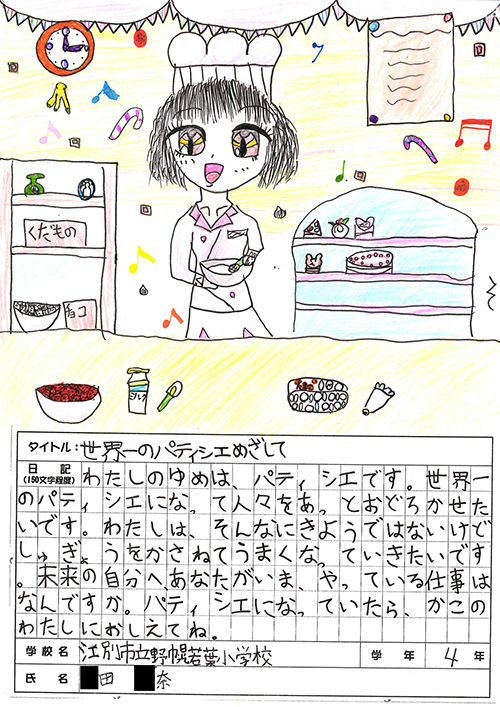 くだもの
チョコ
ミルク
タイトル：世界一のパティシエめざして
日記
(150文字程度)
わたしのゆめは、パティシエです。世界一
のパティシエになって人々をあっとおどろかせた
いです。わたしは、そんなにきようではないけど
しゅぎょうをかさねてうまくなっていきたいです
。未来の自分へあなたがいま、やっている仕事は
なんですか。パティシエになっていたら、かこの
わたしにおしえてね。
学校名 江別市立野幌若葉小学校 学年 4年
氏名 田 奈